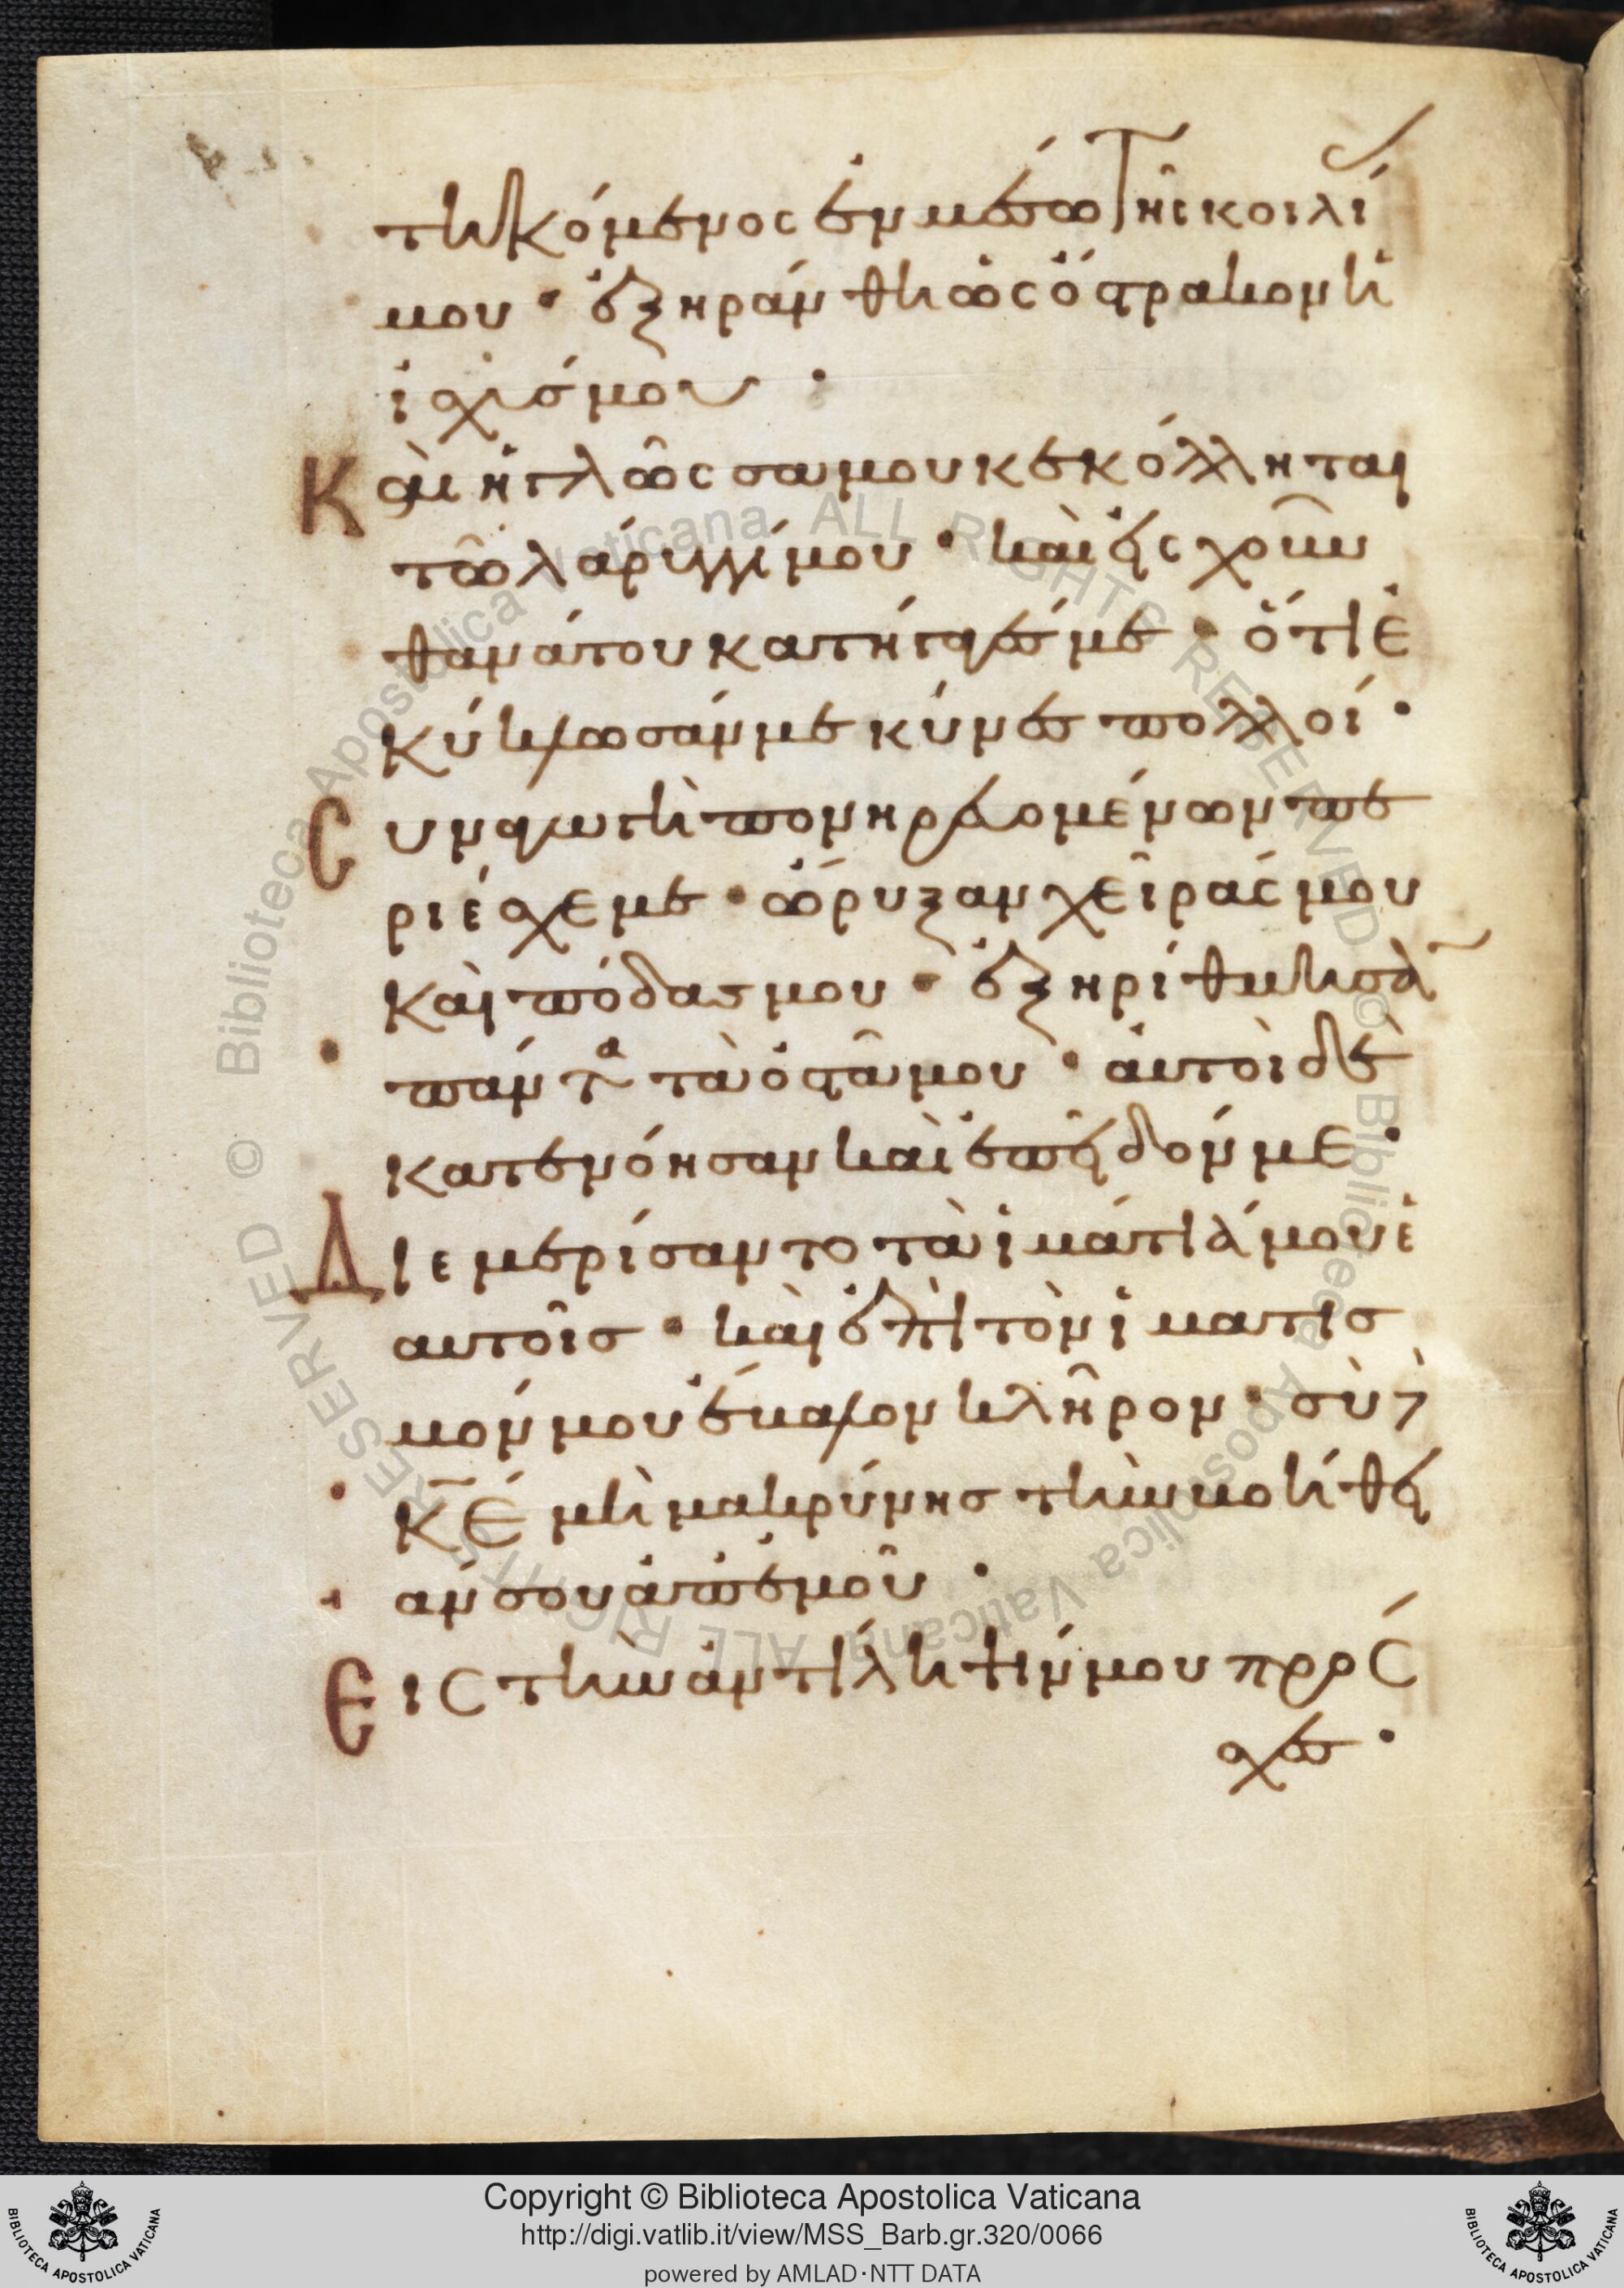 τηκόμενος ἐν μέσω τῆς κοιλί
μου · ἐξηράνθη ὡς ὄστρακον ἡ
ἰσχύσ μου ·
Καὶ ἡ γλῶσσα μου κεκόλληται
τῶ λάρυγγί μου · καὶ εἰς χοῦν
θανάτου κατήγαγέσ με · ὅτι ἐ
κύκλωσάν με κύνες πολλοί ·
Συναγωγὴ πονηρευομένων πε
ριέσχε με · ὤρυξαν χεῖράς μου
καὶ πόδας μου · ἐξηρίθμησα
πάντα τὰ ὀστᾶ μου · αὐτοὶ δὲ
κατενόησαν καὶ ἐπεῖδόν με ·
Διεμερίσαντο τὰ ἱμάτιά μου ἑ
αυτοῖσ · καὶ ἐπὶ τὸν ἱματισ
μόν μου ἔβαλον κλῆρον · σὺ δὲ
κ̅ε̅ μὴ μακρύνησ τὴν βοήθει
άν σου ἀπ' ἐμοῦ ·
Εἰς τὴν ἀντίληψίν μου πρός
χες ·
Copyright © Biblioteca Apostolica Vaticana
http://digi.vatlib.it/view/MSS_Barb.gr.320/0066
powered by AMLAD·NTT DATA
BIBLIOTECA APOSTOLICA VATICANA
BIBLIOTECA APOSTOLICA VATICANA
© Biblioteca Apostolica Vaticana ALL RIGHTS RESERVED © Biblioteca Apostolica Vaticana ALL RIGHTS RESERVED